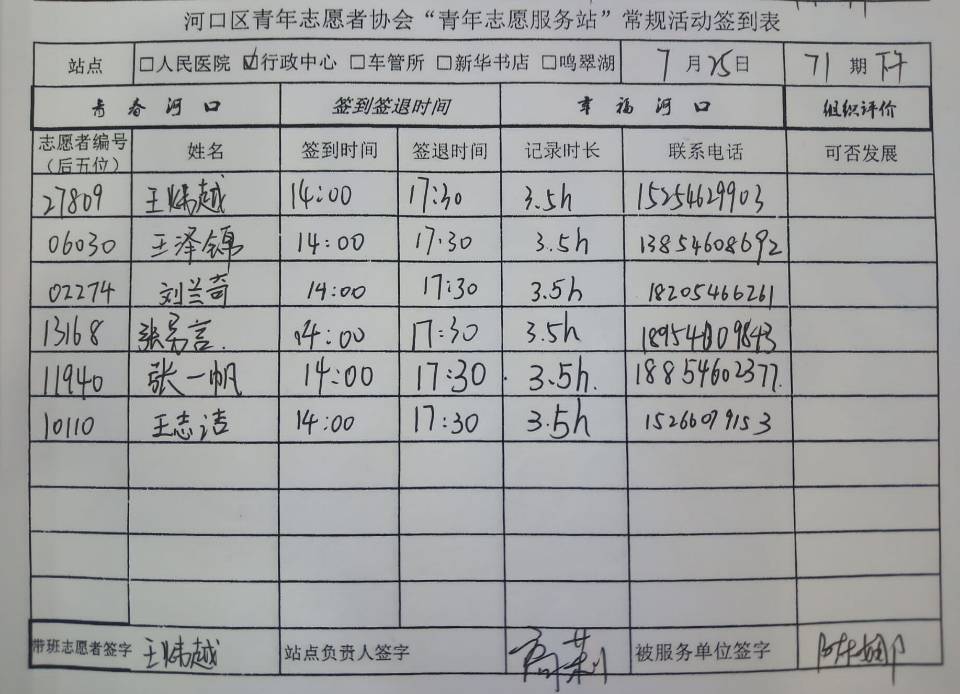 河口区青年志愿者协会“青年志愿服务站”常规活动签到表
站点 □人民医院 ☑行政中心 □车管所 □新华书店 □鸣翠湖 7月25日 71期下午
青春河口 签到签退时间 幸福河口 组织评价
志愿者编号（后五位） 姓名 签到时间 签退时间 记录时长 联系电话 可否发展
27809 王炜越 14:00 17:30 3.5h 15254629903
06030 王泽锦 14:00 17:30 3.5h 13854608692
02274 刘兰奇 14:00 17:30 3.5h 18205466261
13168 张易言 14:00 17:30 3.5h
11940 张一帆 14:00 17:30 3.5h. 18854602377.
10110 王志洁 14:00 17:30 3.5h 15266079153
带班志愿者签字 王炜越 站点负责人签字 被服务单位签字